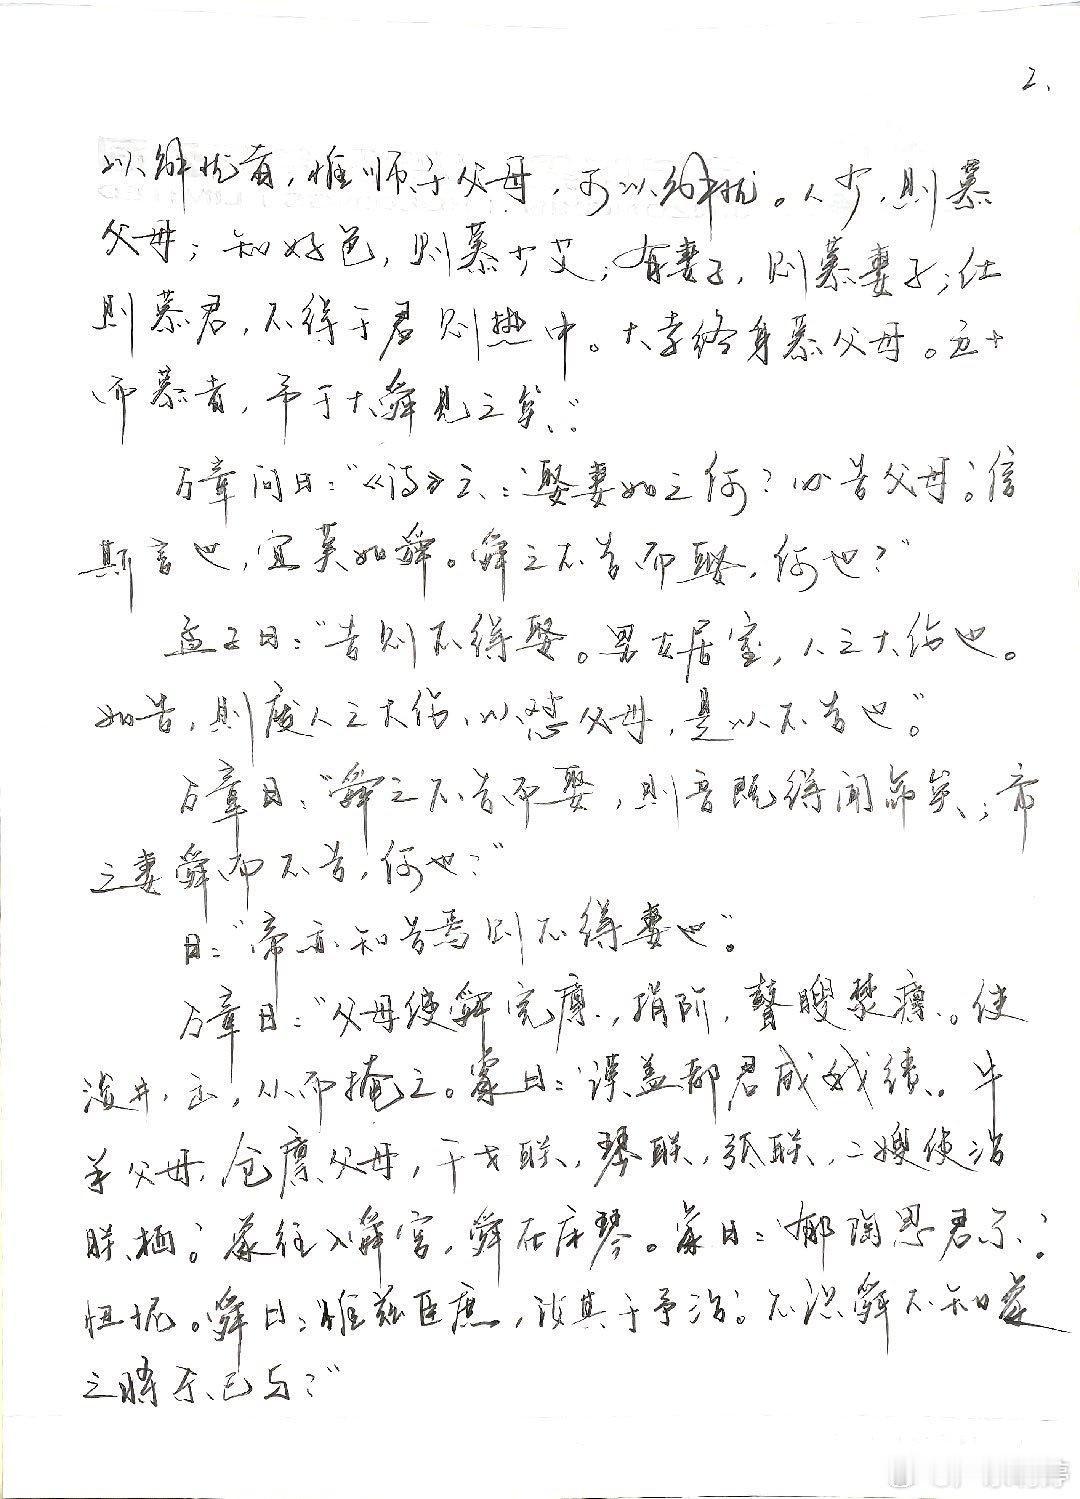 2、
以解忧者，惟顺于父母，可以解忧。人少，则慕
父母；知好色，则慕少艾；有妻子，则慕妻子；仕
则慕君，不得于君则热中。大孝终身慕父母。五十
而慕者，予于大舜见之矣。”
万章问曰：“《诗》云：‘娶妻如之何？必告父母。’信
斯言也，宜莫如舜。舜之不告而娶，何也？”
孟子曰：“告则不得娶。男女居室，人之大伦也。
如告，则废人之大伦，以怼父母，是以不告也。”
万章曰：“舜之不告而娶，则吾既得闻命矣；帝
之妻舜而不告，何也？”
曰：“帝亦知告焉则不得妻也”。
万章曰：“父母使舜完廪，捐阶，瞽瞍焚廪。使
浚井，出，从而掩之。象曰：‘谟盖都君咸我绩。牛
羊父母，仓廪父母，干戈朕，琴朕，弤朕，二嫂使治
朕栖。’象往入舜宫，舜在床琴。象曰：‘郁陶思君尔。’
忸怩。舜曰：‘惟兹臣庶，汝其于予治。’不识舜不知象
之将杀己与？”